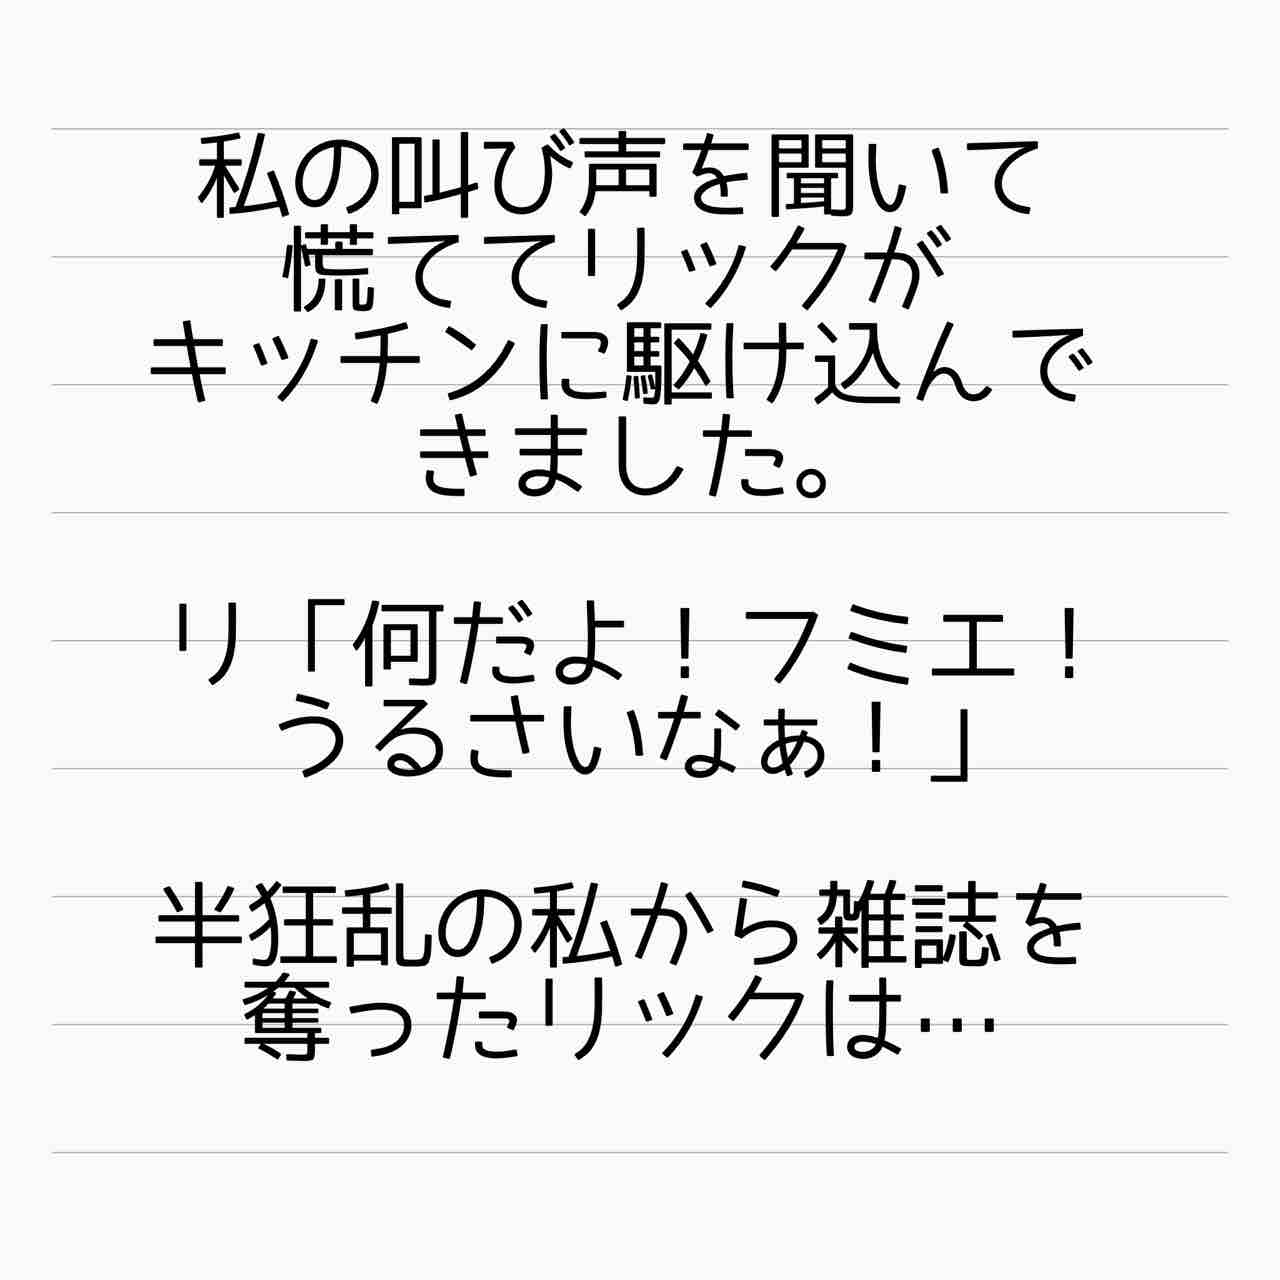 私の叫び声を聞いて
慌ててリックが
キッチンに駆け込んで
きました。
リ「何だよ！フミエ！
うるさいなぁ！」
半狂乱の私から雑誌を
奪ったリックは…